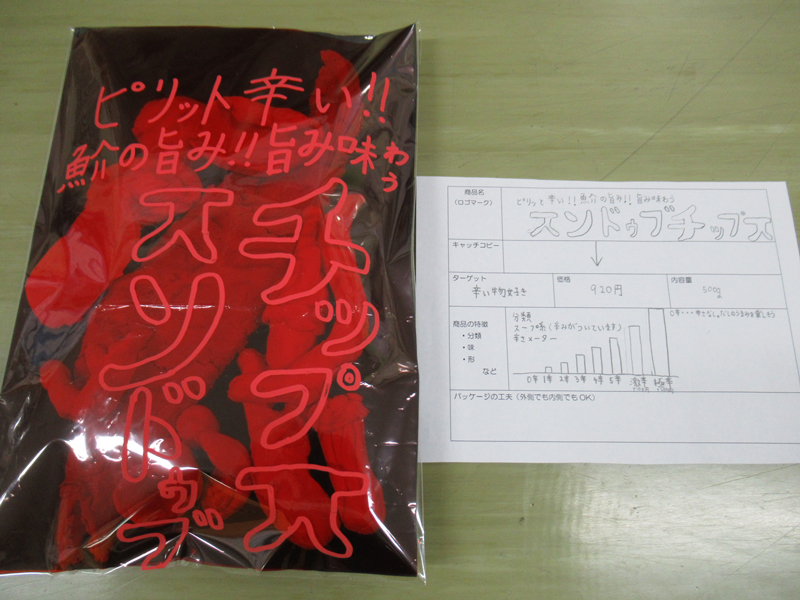 ピリット辛い!!
魚介の旨み!!旨み味わう
スンドゥブ
チップス
商品名
(ロゴマーク)
ピリッと辛い!!魚介の旨み!!旨み味わう
スンドゥブチップス
キャッチコピー
ターゲット
辛い物好き
価格
920円
内容量
500g
商品の特徴
・分類
・味
・形
など
分類
スープ系(辛みがついています)
辛さメーター
0辛 1辛 2辛 3辛 4辛 5辛 激辛 極辛
パッケージの工夫(外側でも内側でもOK)